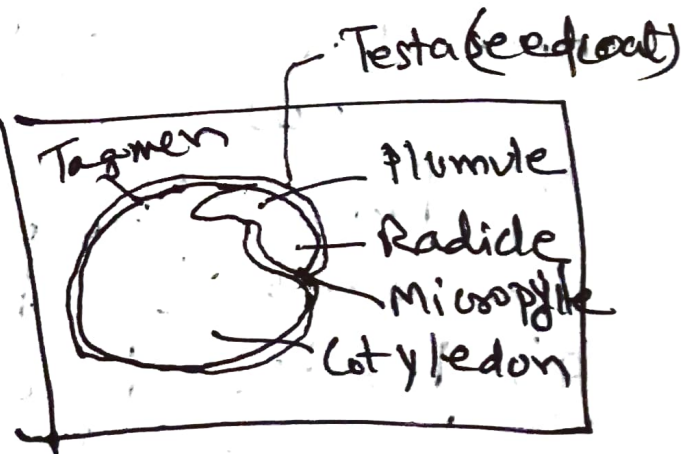 Testa (seedcoat)
Tagmen
Plumule
Radicle
Micropyle
Cotyledon